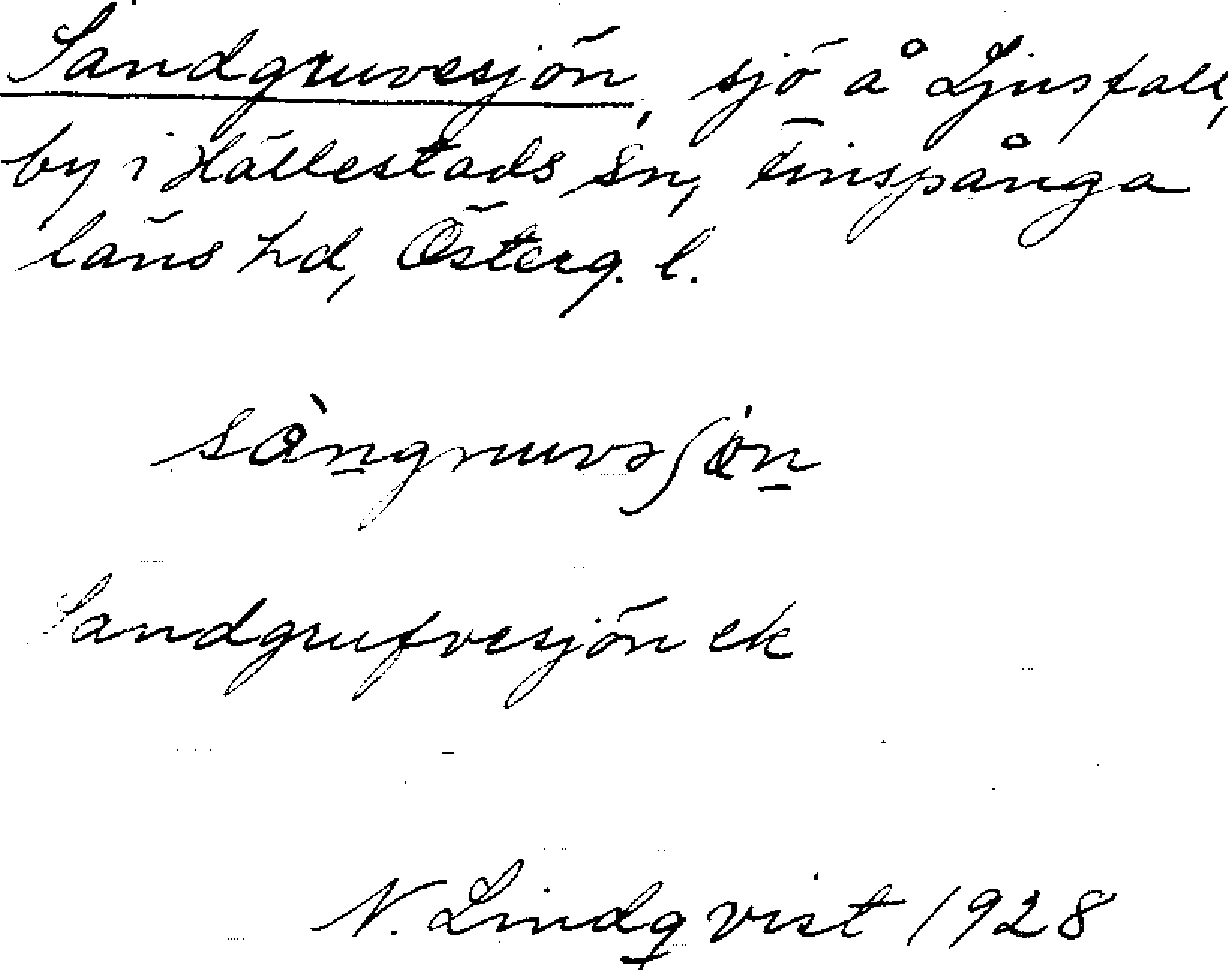 Sandgruvesjön, sjö å Ljusfall,
by i Hällestads sn, Finspånga
läns hd, Österg. l.
sàn̲gruvəʃön̲
Sandgrufvesjön ek
N. Lindqvist 1928